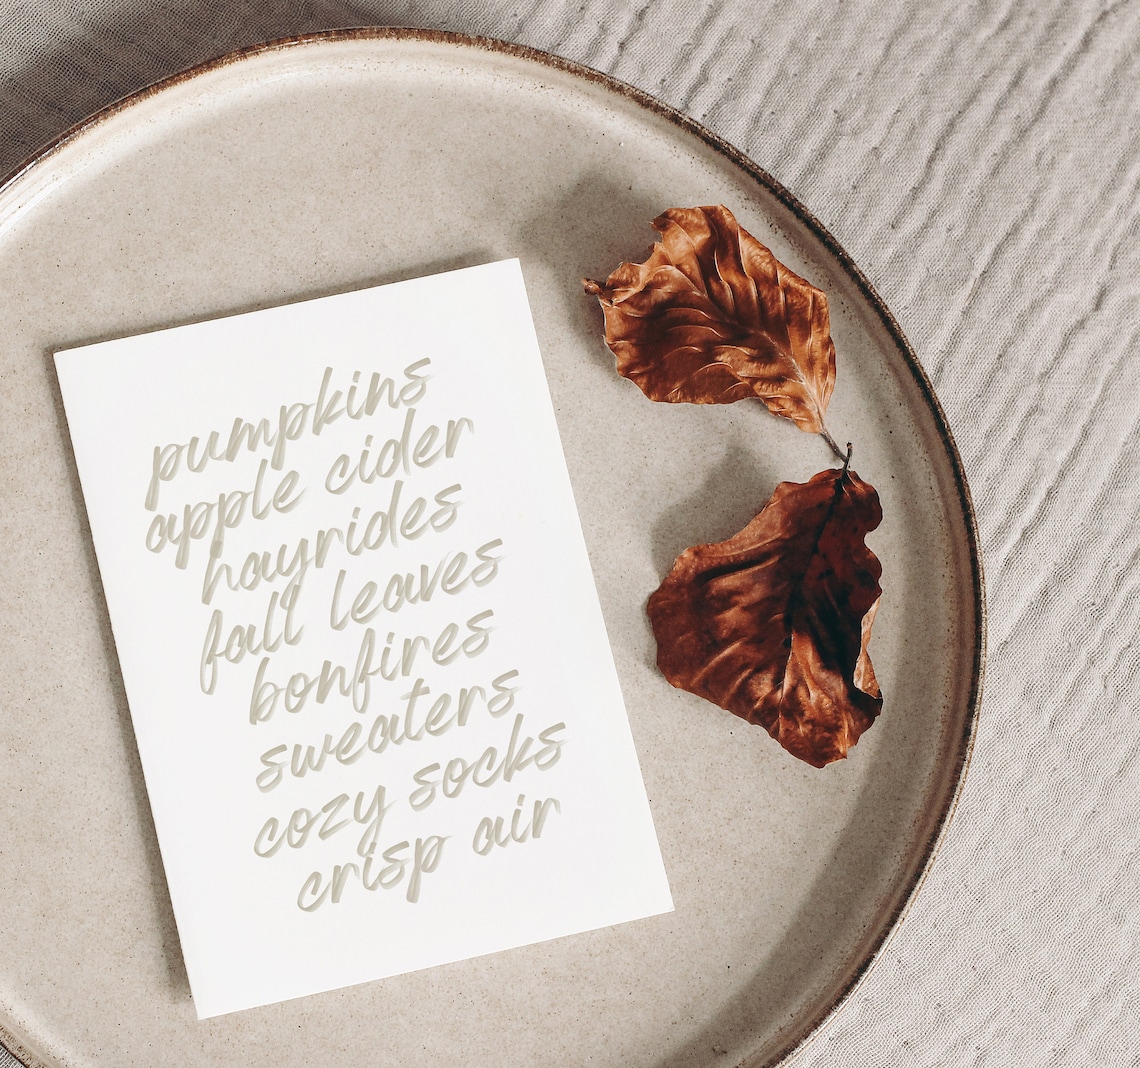 pumpkins
apple cider
hayrides
fall leaves
bonfires
sweaters
cozy socks
crisp air